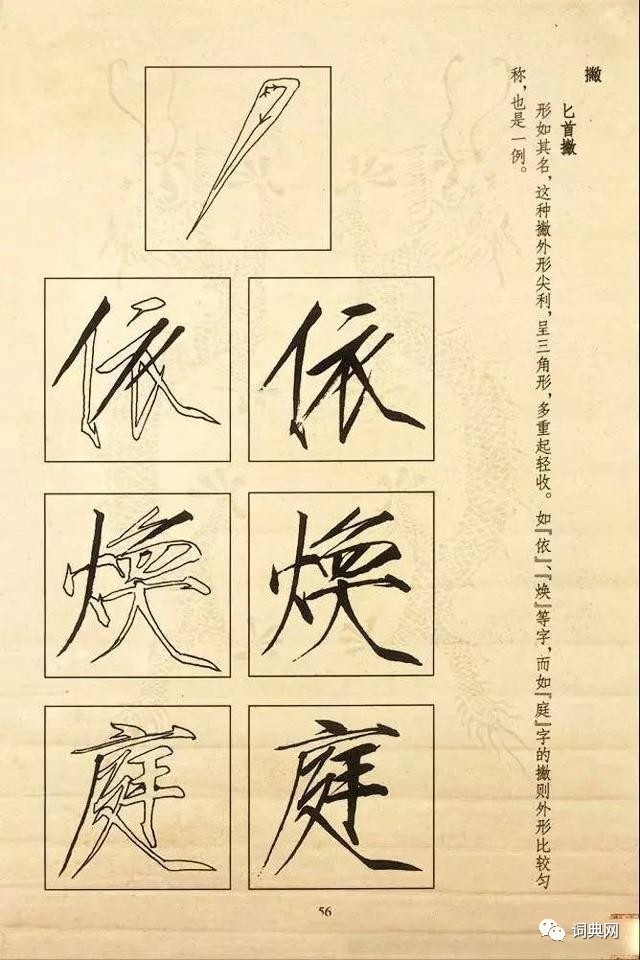 撇
匕首撇
形如其名，这种撇外形尖利，呈三角形，多重起轻收。如『依』、『焕』等字，而如『庭』字的撇则外形比较匀
称，也是一例。
依 依
焕 焕
庭 庭
56
词典网